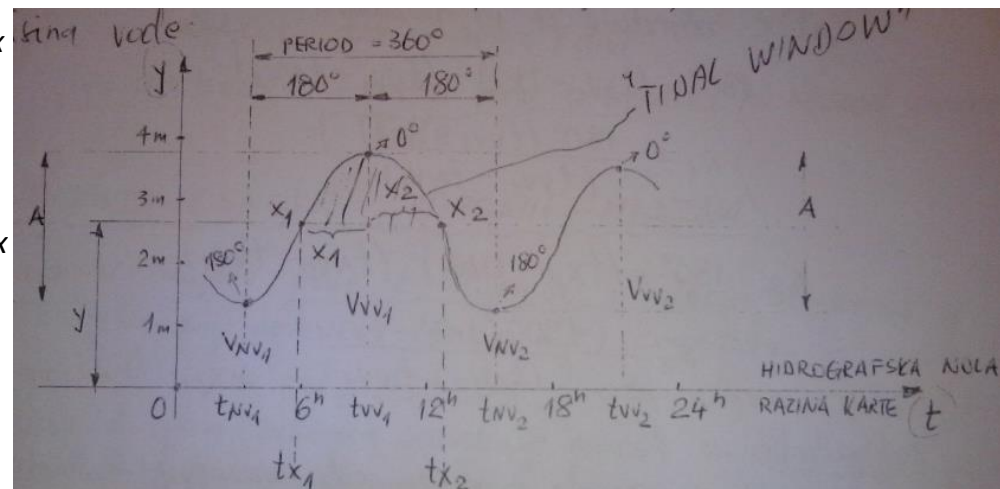 x
x
sina vode
PERIOD = 360°
180° 180°
"TIDAL WINDOW"
y
4m
3m
2m
1m
0°
0°
A
A
x1
x1
x2
x2
180°
180°
y
VNV1
VVV1
VNV2
VVV2
HIDROGRAFSKA NULA
RAZINA KARTE
0 tNV1 6h tVV1 12h tNV2 18h tVV2 24h t
tx1 tx2